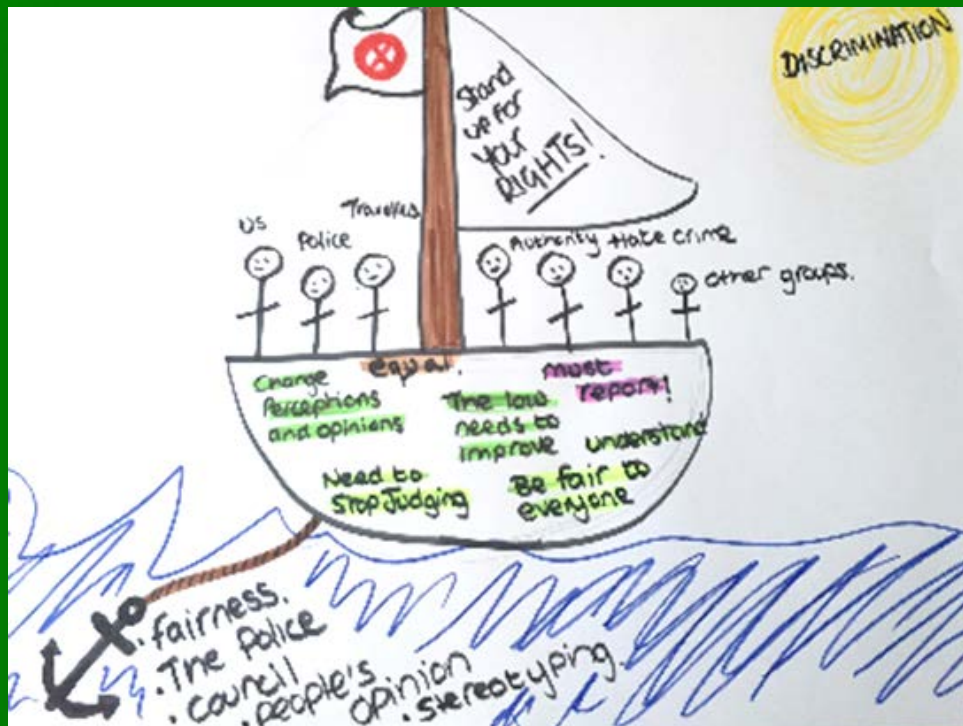 DISCRIMINATION
Stand
up for
your
RIGHTS!
Travellers
us
Police
Authority Hate crime
other groups.
equal.
must
report!
Change
Perceptions
and opinions
The law
needs to
improve
understand
Need to
Stop Judging
Be fair to
everyone
. fairness.
. The Police
. Council
. people's
opinion
. stereotyping.